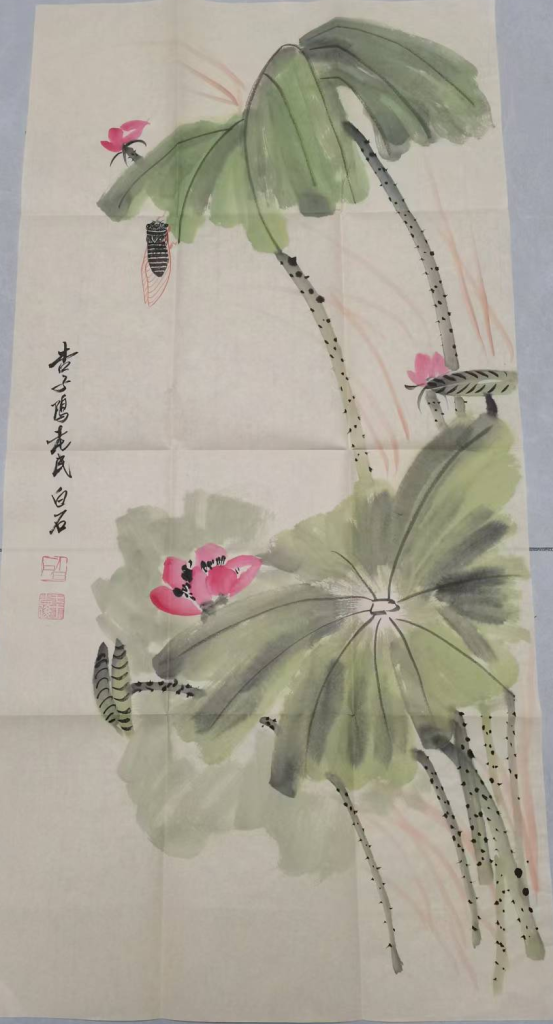 杏子隖老民白石